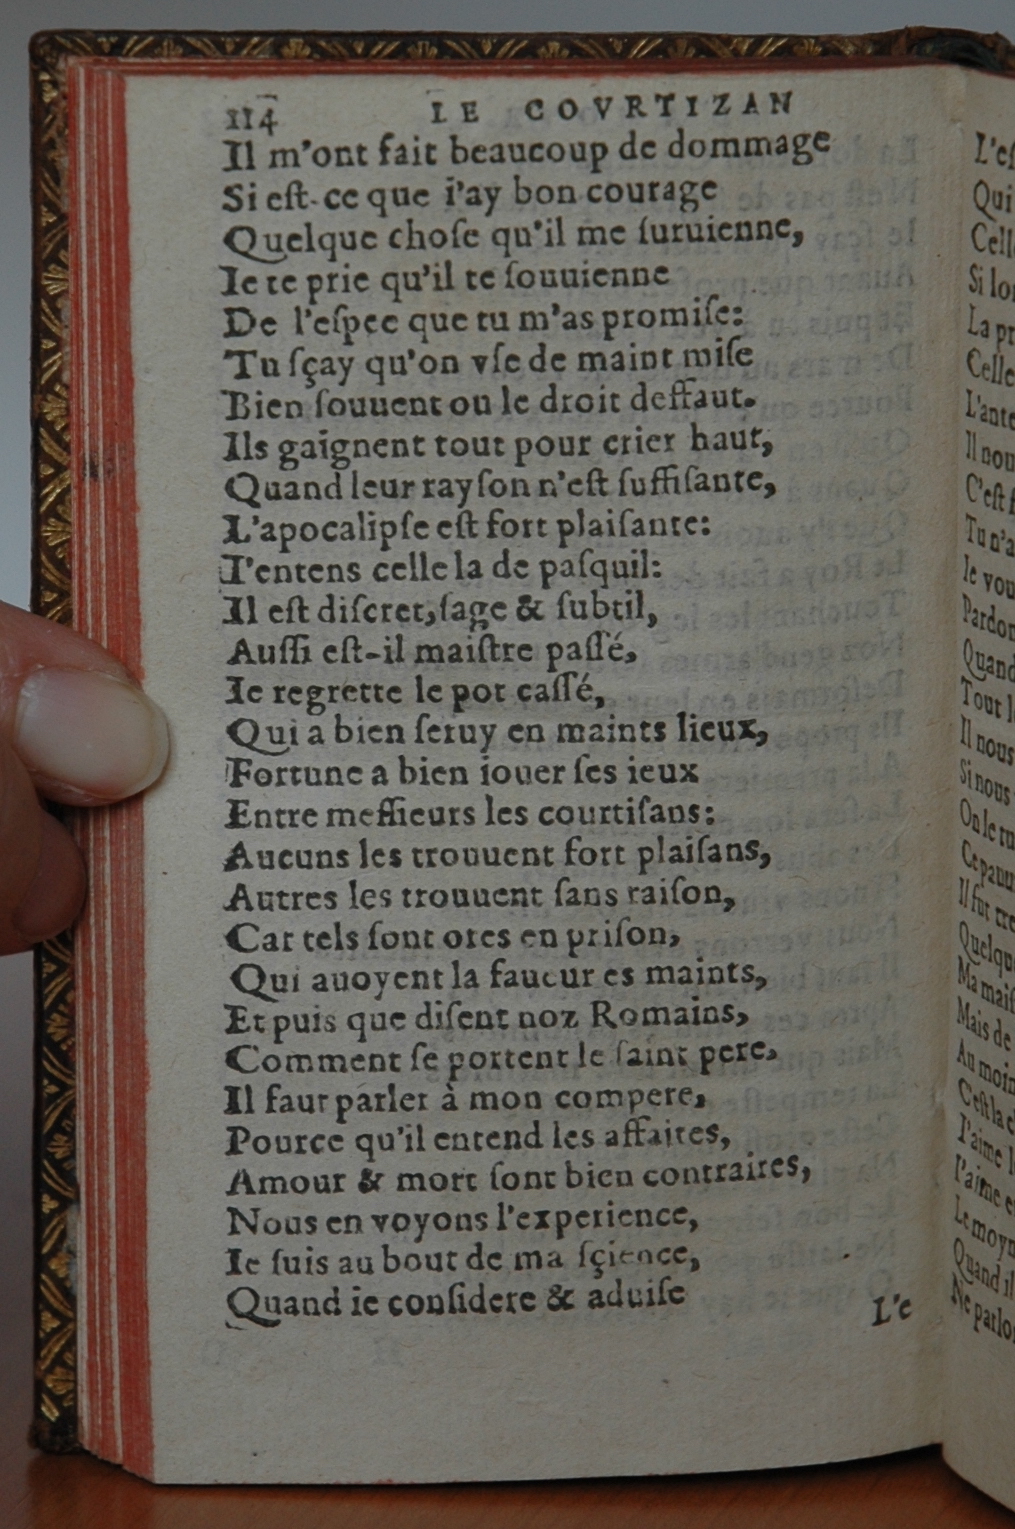 114 LE COVRTIZAN
Il m'ont fait beaucoup de dommage
Si eſt-ce que i'ay bon courage
Quelque choſe qu'il me ſuruienne,
Ie te prie qu'il te ſouuienne
De l'eſpee que tu m'as promiſe:
Tu ſçay qu'on vſe de maint miſe
Bien ſouuent ou le droit deffaut.
Ils gaignent tout pour crier haut,
Quand leur rayſon n'eſt ſuffiſante,
L'apocalipſe eſt fort plaiſante:
I'entens celle la de paſquil:
Il eſt diſcret, ſage & ſubtil,
Auſſi eſt-il maiſtre paſſé,
Ie regrette le pot caſſé,
Qui a bien ſeruy en maints lieux,
Fortune a bien iouer ſes ieux
Entre meſſieurs les courtiſans:
Aucuns les trouuent fort plaiſans,
Autres les trouuent ſans raiſon,
Car tels ſont ores en priſon,
Qui auoyent la faueur es maints,
Et puis que diſent noz Romains,
Comment ſe portent le ſaint pere,
Il faut parler à mon compere,
Pource qu'il entend les affaires,
Amour & mort ſont bien contraires,
Nous en voyons l'experience,
Ie ſuis au bout de ma ſçience,
Quand ie conſidere & aduiſe
L'e
Qui
Si
La
Celle
Il
C'eſt
Tu n'a
Ie vou
Quand
Tout
Il nous
Si nous
On le
Il fut
Mais de
Au moin
C'eſt la
I'aime
I'aime
Le moyn
Quand il
Ne